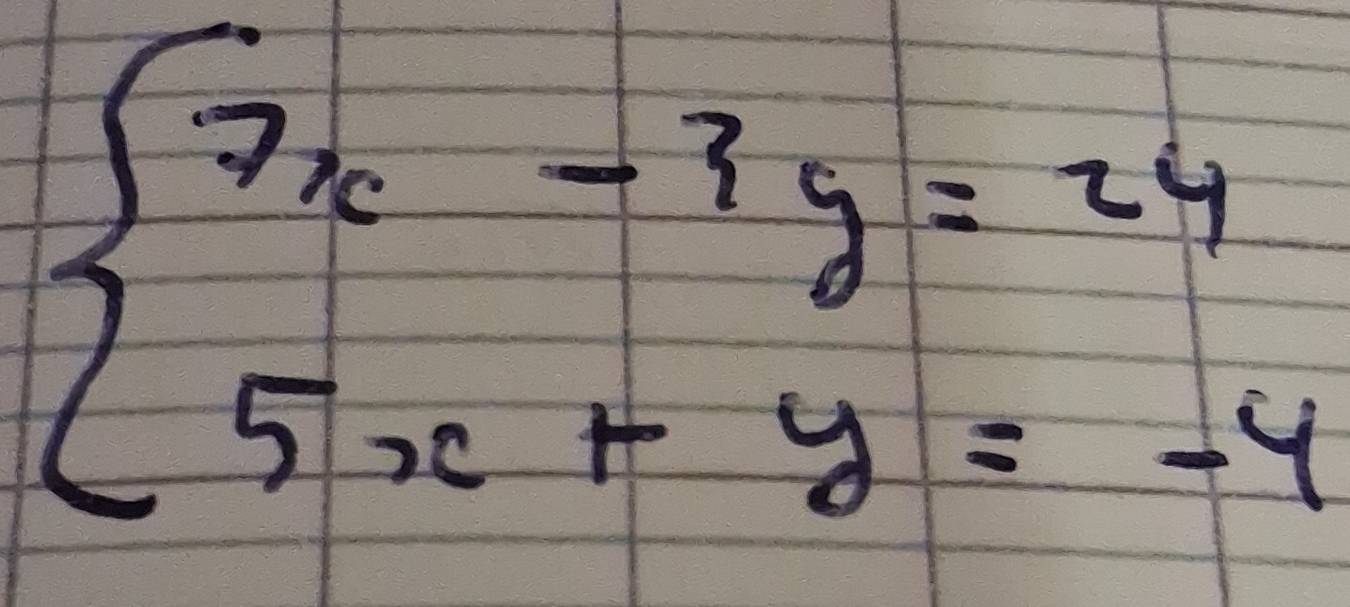 7x - 3y = 24
5x + y = -4